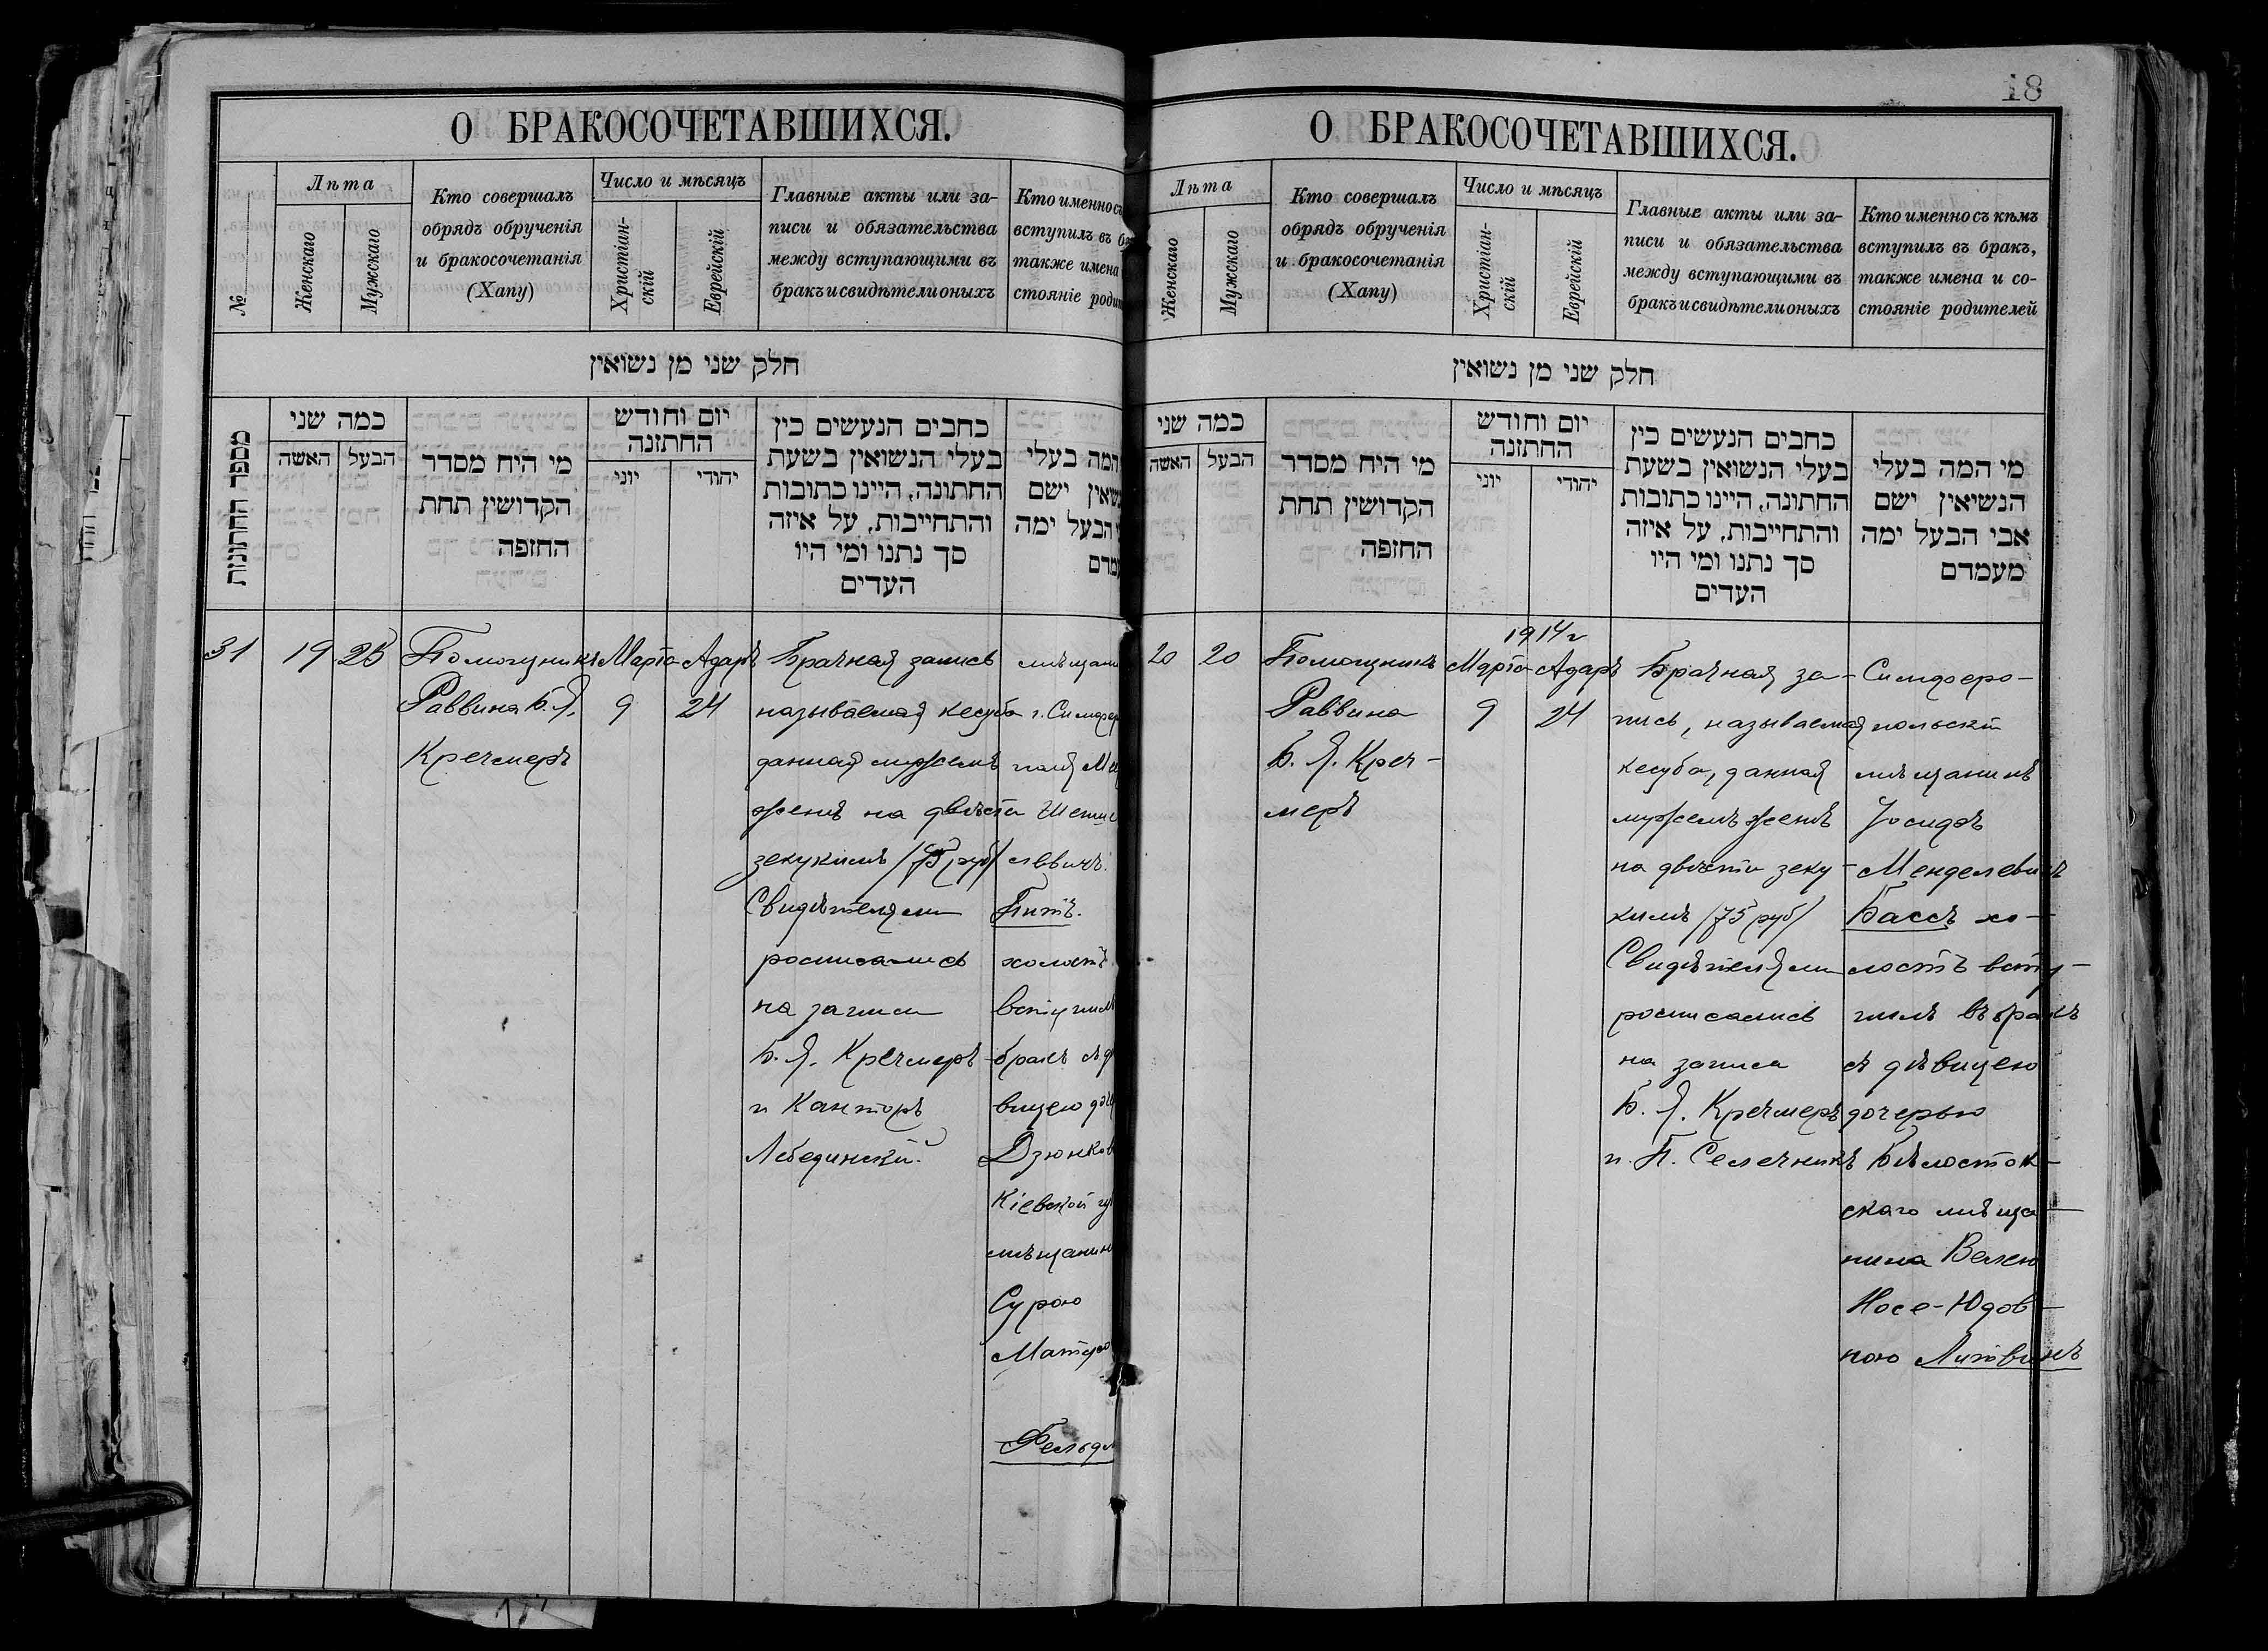 О БРАКОСОЧЕТАВШИХСЯ.
№
Лѣта
Женскаго
Мужскаго
Кто совершалъ
обрядъ обрученія
и бракосочетанія
(Хапу)
Число и мѣсяцъ
Христіан-
скій
Еврейскій
Главные акты или за-
писи и обязательства
между вступающими въ
бракъ и свидѣтели оныхъ
Кто именно съ
вступилъ въ
также имена
стояніе
חלק שני מן נשואין
מספר החתונות
כמה שני
האשה
הבעל
מי היח מסדר
הקדושין תחת
החזפה
יום וחודש
החתזנה
יוני
יהודי
כחבים הנעשים כין
בעלי הנשואין בשעת
החתונה, היינו כתובות
והתחייבות, על איזה
סך נתנו ומי היו
העדים
המה בעלי
ישם
הבעל ימה
31
19
25
Помощникъ
Раввина Б. Я.
Кречмеръ
Марта
9
Адаръ
24
Брачная запись
называемая кесуба
данная мужемъ
женѣ на двѣсти
зекукимъ /75 руб/
Свидѣтелями
росписались
на записи
Б. Я. Кречмеръ
и Канторъ
Лебединскій.
г.
левичъ.
Питъ.
холостъ
вступилъ
бракъ съ
вицею
Кіевской
Сурою
18
О БРАКОСОЧЕТАВШИХСЯ.
Лѣта
Женскаго
Мужскаго
Кто совершалъ
обрядъ обрученія
и бракосочетанія
(Хапу)
Число и мѣсяцъ
Христіан-
скій
Еврейскій
Главные акты или за-
писи и обязательства
между вступающими въ
бракъ и свидѣтели оныхъ
Кто именно съ кѣмъ
вступилъ въ бракъ,
также имена и со-
стояніе родителей
חלק שני מן נשואין
כמה שני
האשה
הבעל
מי היח מסדר
הקדושין תחת
החזפה
יום וחודש
החתזנה
יוני
יהודי
כחבים הנעשים כין
בעלי הנשואין בשעת
החתונה, היינו כתובות
והתחייבות, על איזה
סך נתנו ומי היו
העדים
מי המה בעלי
הנשיאין ישם
אבי הבעל ימה
מעמדם
20
20
Помощникъ
Раввина
Б. Я. Креч-
меръ
1914 г
Марта
9
Адаръ
24
Брачная за-
пись, называемая
кесуба, данная
мужемъ женѣ
на двѣсти зеку-
кимъ /75 руб/
Свидѣтелями
росписались
на записи
Б. Я. Кречмеръ
и П. Селечникъ
Симферо-
польскій
мѣщанинъ
Іосифъ
Менделевичъ
Бассъ хо-
лостъ всту-
пилъ въ бракъ
съ дѣвицею
дочерью
Бѣлосток-
скаго мѣща-
нина Велею
Носе-Юдов-
ною Литвинъ